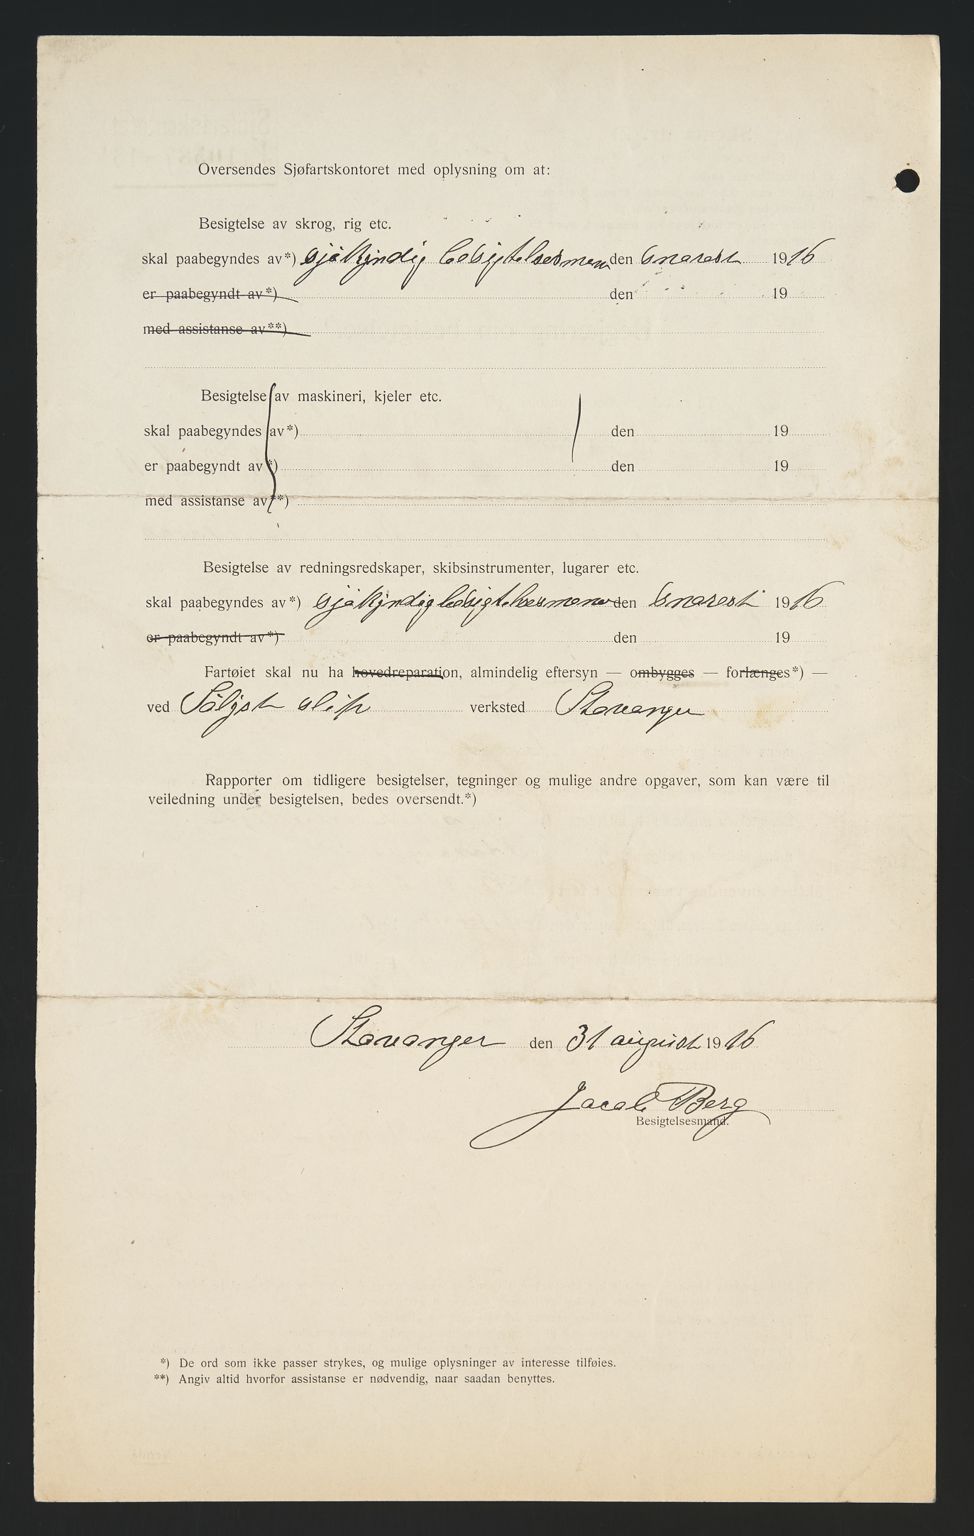 Oversendes Sjøfartskontoret med oplysning om at:
Besigtelse av skrog, rig etc.
skal paabegyndes av*) sjökyndig besigtelsesmenn den snarest 1916
er paabegyndt av*) den 19
med assistanse av**)
Besigtelse av maskineri, kjeler etc.
skal paabegyndes av*) den 19
er paabegyndt av*) den 19
med assistanse av**)
Besigtelse av redningsredskaper, skibsinstrumenter, lugarer etc.
skal paabegyndes av*) sjökyndig besigtelsesmenn den snarest 1916
er paabegyndt av*) den 19
Fartøiet skal nu ha hovedreparation, almindelig eftersyn — ombygges — forlænges*) —
ved slip verksted Stavanger
Rapporter om tidligere besigtelser, tegninger og mulige andre opgaver, som kan være til
veiledning under besigtelsen, bedes oversendt.*)
Stavanger den 31 august 1916
Jacob Berg
Besigtelsesmand.
*) De ord som ikke passer strykes, og mulige oplysninger av interesse tilføies.
**) Angiv altid hvorfor assistanse er nødvendig, naar saadan benyttes.